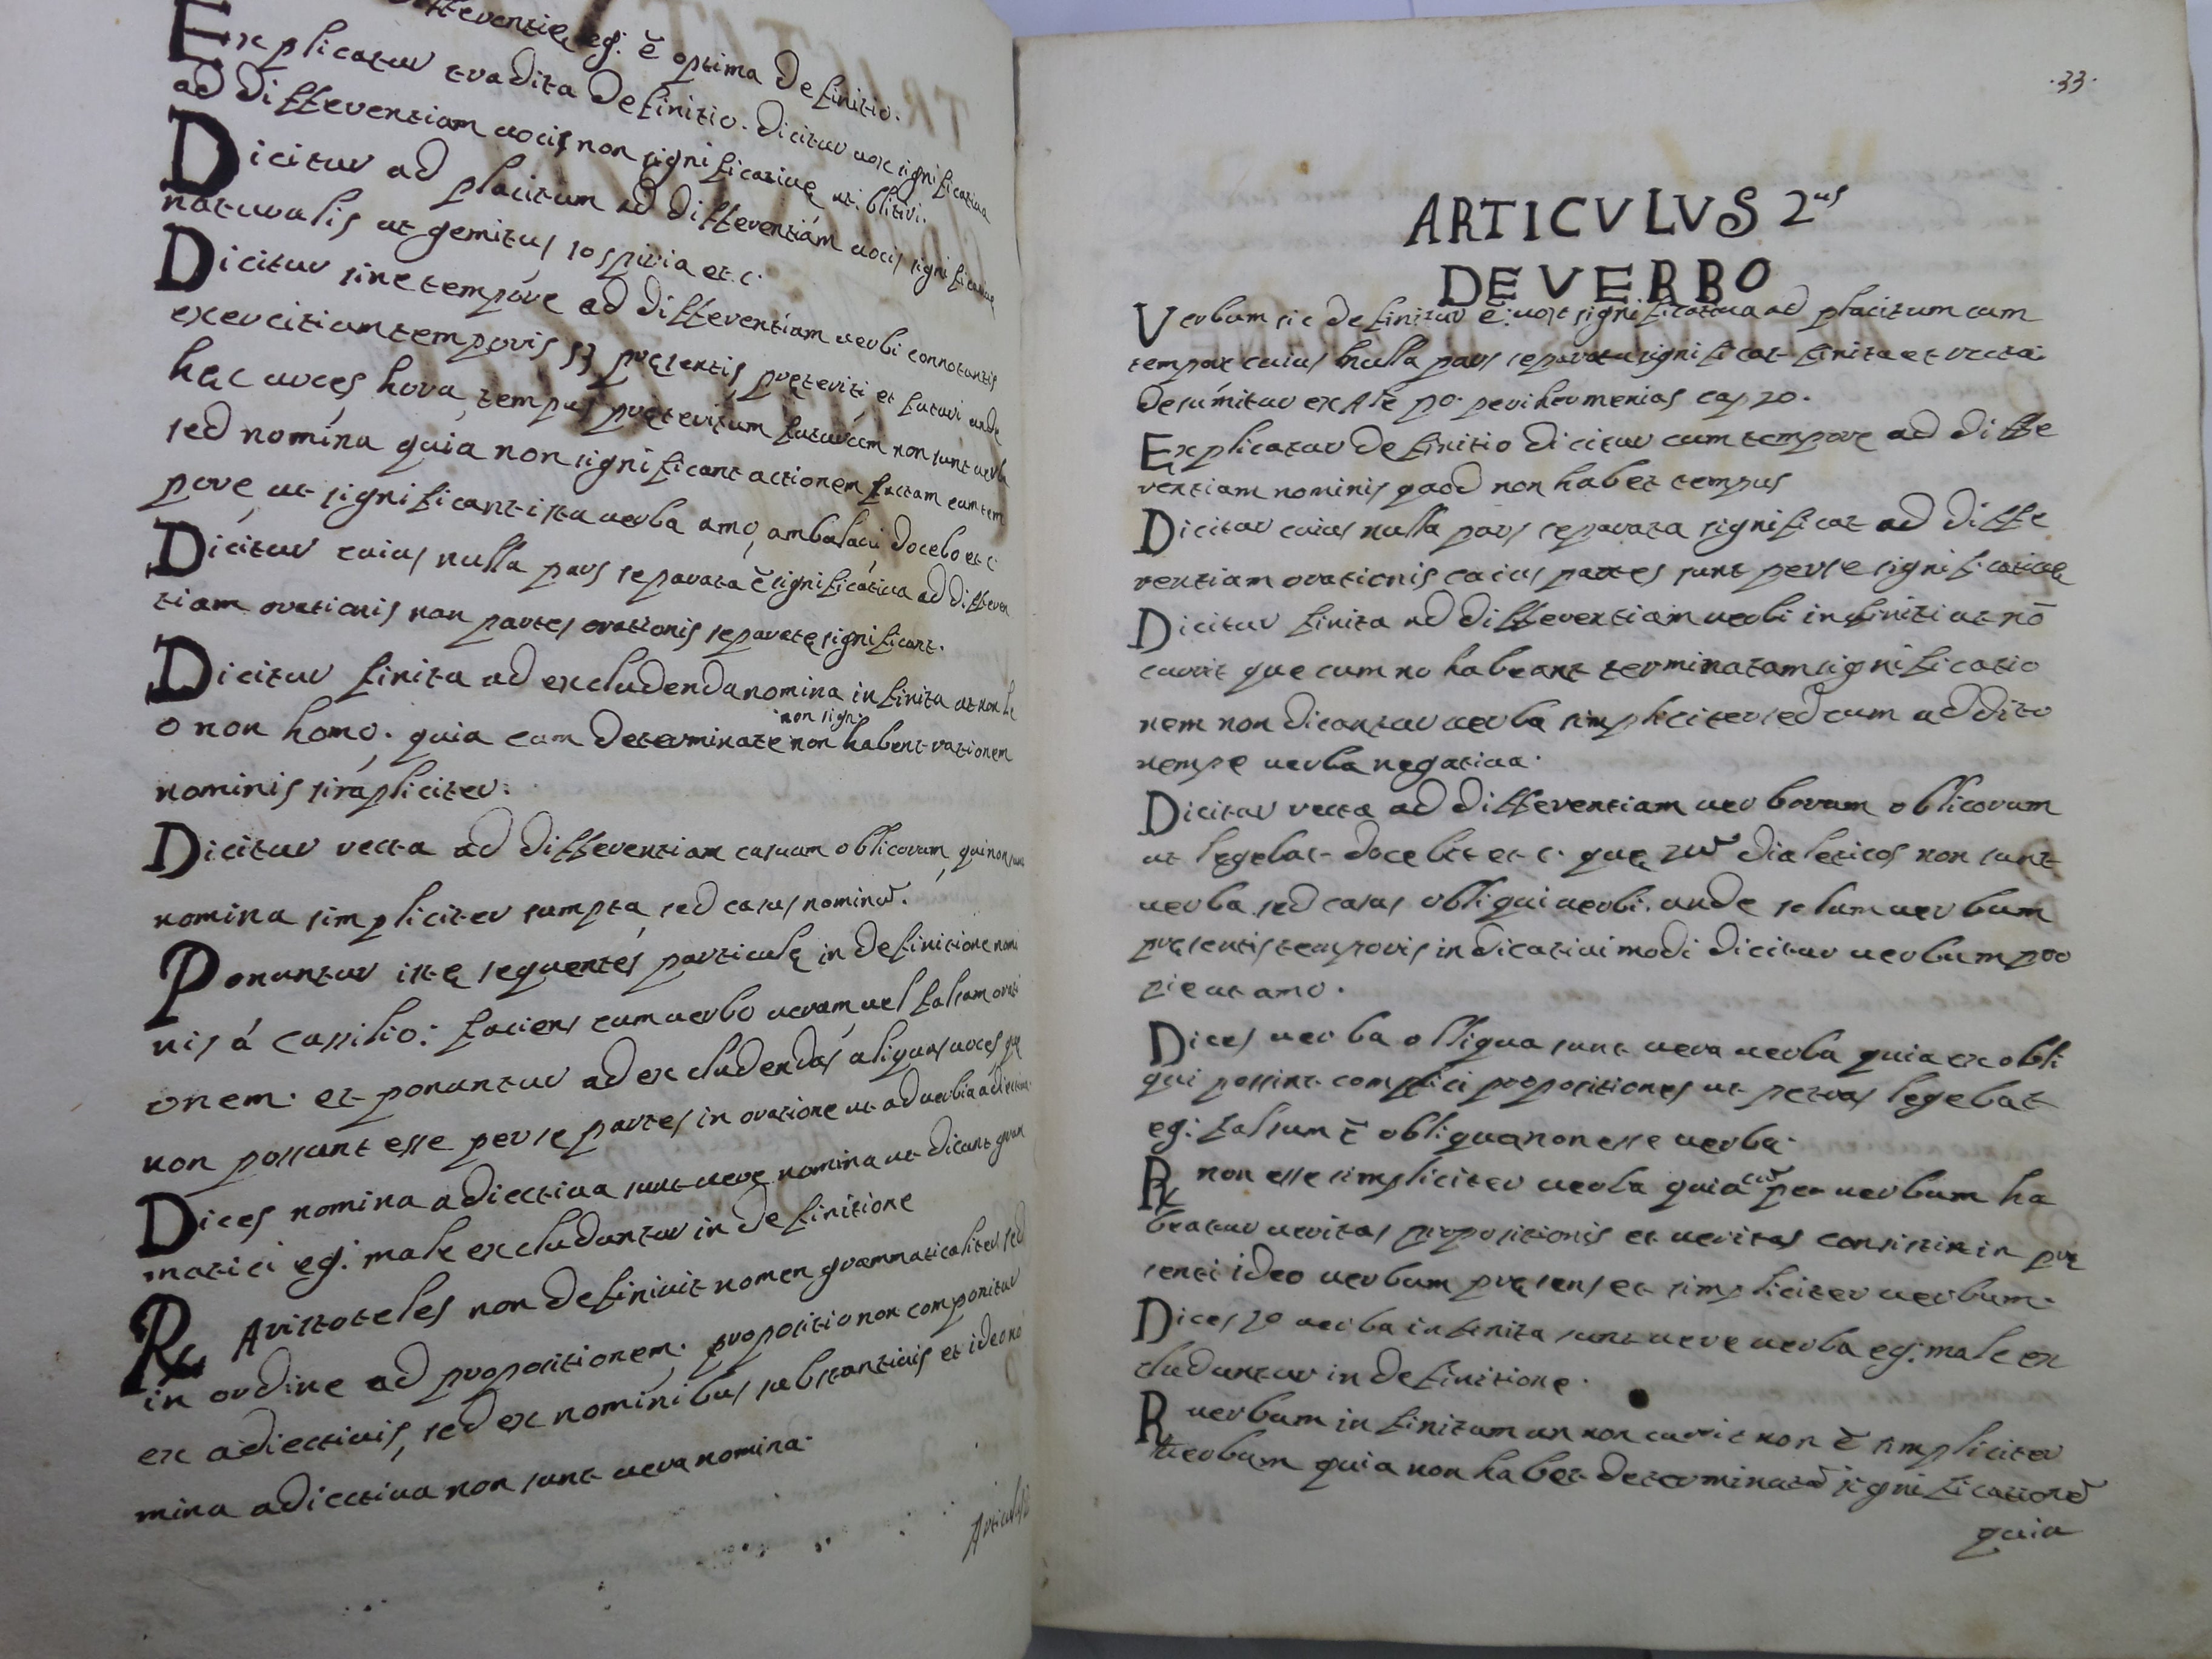 differentię eg: ẽ optima definitio.
Explicatur tradita definitio. dicitur uox significatiua
ad differentiam uocis non significatiuę ut: blitiri.
Dicitur ad placitum ad differentiam uocis significatiuę
naturalis ut gemitus sospiria et c.
Dicitur sine tempore ad differentiam uerbi connotantis
exercitium temporis pręsentis, pręteriti et futuri unde
hęc uoces hora, tempus pręteritum futurum non sunt uerba
sed nomina quia non significant actionem factam cum tem
pore, ut significant ista uerba amo, ambulaui docebo et c
Dicitur cuius nulla pars separata ẽ significatiua ad differen
tiam orationis nam partes orationis separatę significant.
Dicitur finita ad excludenda nomina infinita ut non h
o non homo. quia cum determinate non habent rationem
non sign.
nominis simpliciter.
Dicitur recta ad differentiam casuum oblicorum, qui non sunt
nomina simpliciter sumpta, sed casus nominũ.
Ponuntur istę sequentes particulę in definitione nomi
nis á Cassilio: faciens cum uerbo ueram uel falsam orati
onem. et ponuntur ad excludendas aliquas uoces quę
non possunt esse per se partes in oratione ut aduerbia adiectiua.
Dices nomina adiectiua sunt uere nomina ut dicunt gram
matici eg: male excluduntur in definitione
R Aristoteles non definiuit nomen grammaticaliter sed
in ordine ad propositionem. propositio non componitur
ex adiectiuis, sed ex nominibus substantiuis et ideo no
mina adiectiua non sunt uera nomina.
Articulus
.33.
ARTICVLVS 2us
DE VERBO
Verbum sic definitur ẽ: uox significatiua ad placitum cum
tempore cuius nulla pars separata significat finita et recta.
desúmitur ex Ale po. perihermenias cap 20.
Explicatur definitio dicitur cum tempore ad diffe
rentiam nominis quod non habet tempus
Dicitur cuius nulla pars separata significat ad diffe
rentiam orationis cuius partes sunt per se significatiuę
Dicitur finita ad differentiam uerbi infiniti ut nõ
currit que cum no habeant terminatam significatio
nem non dicuntur uerba simpliciter sed cum addito
nempe uerba negatiua.
Dicitur recta ad differentiam uerborum oblicorum
ut legebat docebit et c. quę dialeticos non sunt
uerba sed casus obliqui uerbi. unde solum uerbum
pręsentis temporis indicatiui modi dicitur uerbum pro
pie ut amo.
Dices uerba obliqua sunt uera uerba quia ex obli
qui possint complici propositiones ut petrus legebat
eg: falsum ẽ obliqua non esse uerba.
R non esse simpliciter uerba quia cũ per uerbum ha
beatur ueritas propositionis et ueritas consistit in prę
senti ideo uerbum pręsens et simpliciter uerbum.
Dices 2o uerba infinita sunt uere uerba eg: male ex
cluduntur in definitione.
R uerbum infinitum un non currit non ẽ simpliciter
uerbum quia non habet determinatã significationẽ
quia